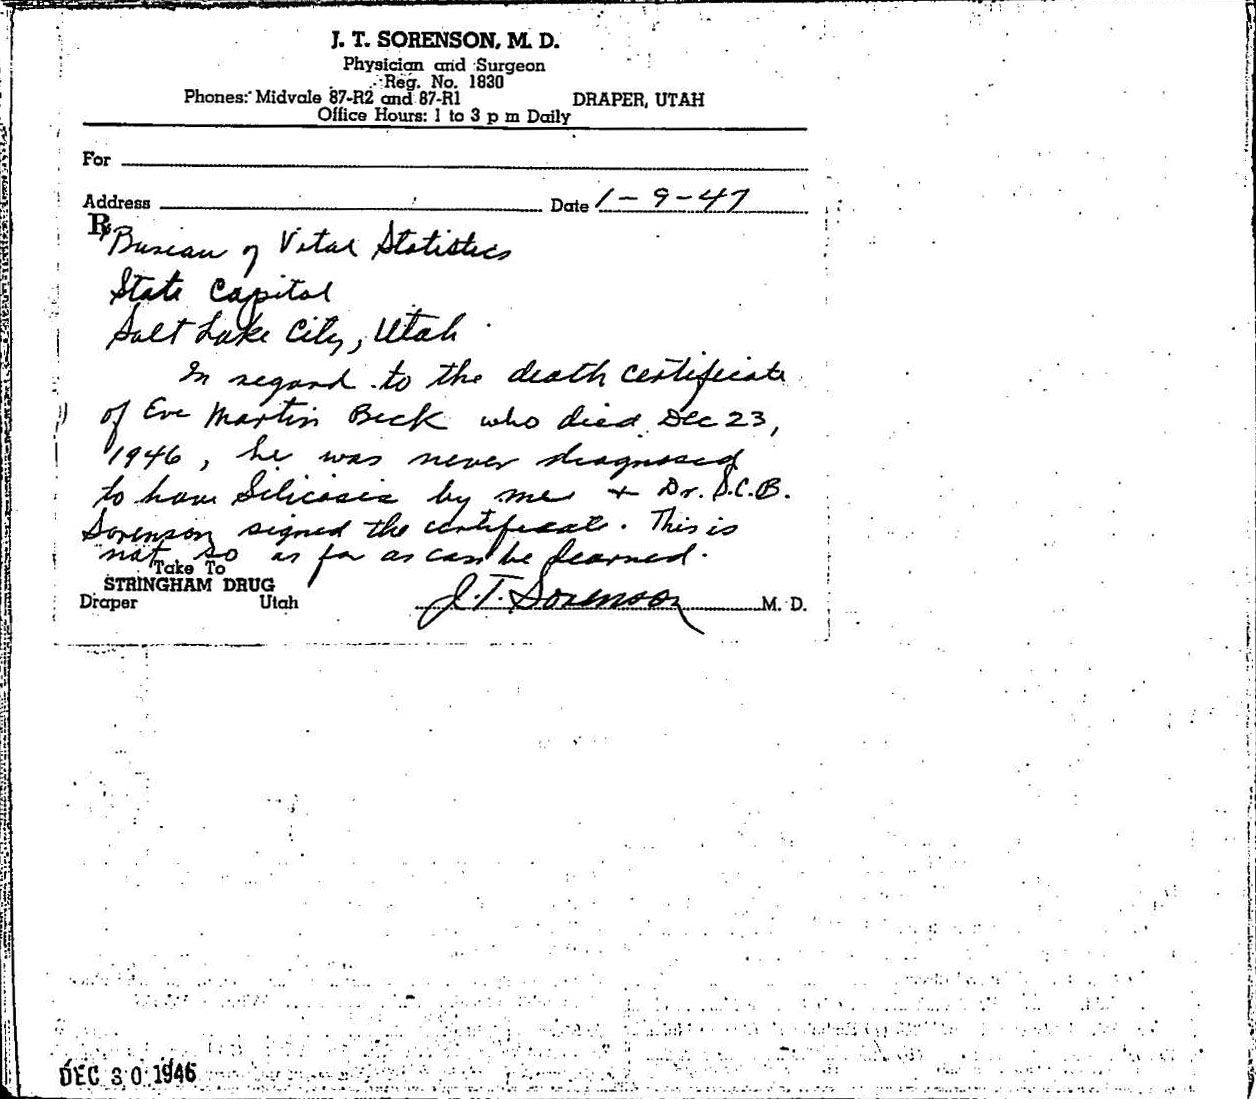 J. T. SORENSON, M. D.
Physician and Surgeon
Reg. No. 1830
Phones: Midvale 87-R2 and 87-R1 DRAPER, UTAH
Office Hours: 1 to 3 p m Daily
For
Address Date 1-9-47
℞
Bureau of Vital Statistics
State Capitol
Salt Lake City, Utah
In regard to the death certificate
of Eve Martin Beck who died Dec 23,
1946, he was never diagnosed
to have Silicosis by me + Dr. D.C.B.
Sorenson signed the certificate. This is
not so as far as can be learned.
Take To
STRINGHAM DRUG
Draper Utah
J. T. Sorenson M. D.
DEC 30 1946